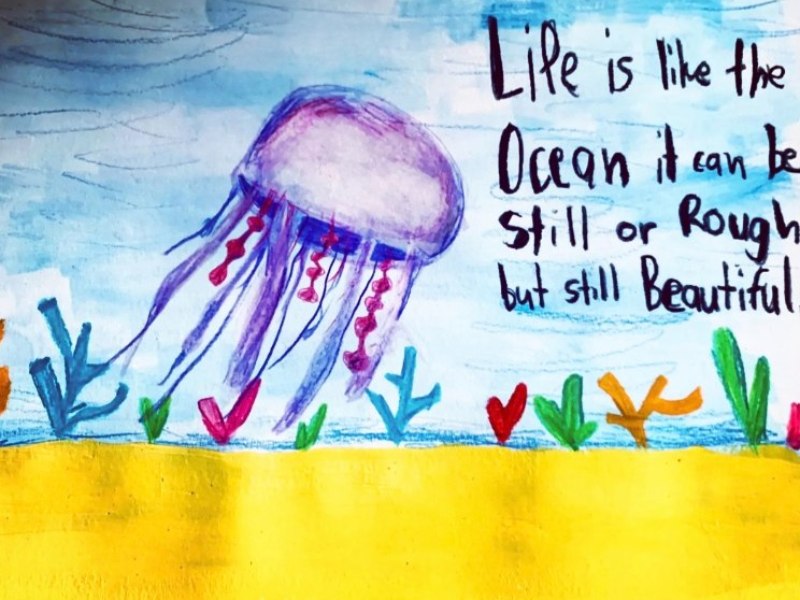 Life is like the
Ocean it can be
still or Rough
but still Beautiful